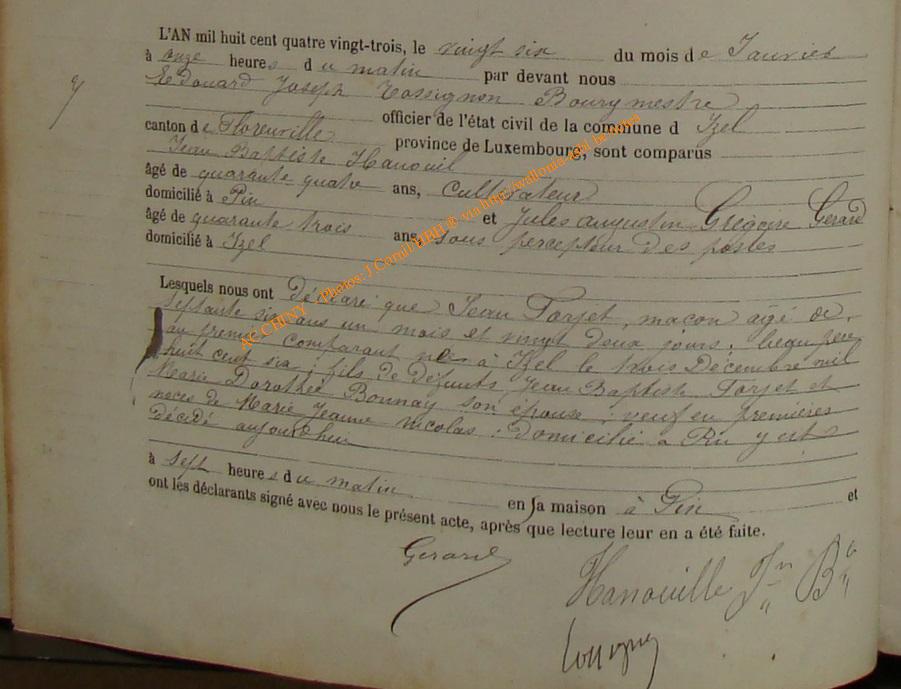 L'AN mil huit cent quatre vingt-trois, le vingt six du mois de Janvier
à onze heures du matin par devant nous
Edouard Joseph Tossignon Bourgmestre
officier de l'état civil de la commune d Izel
canton de Florenville province de Luxembourg, sont comparus
Jean Baptiste Hanouil
âgé de quarante quatre ans, Cultivateur
domicilié à Pin et Jules augustin Grégoire Gerard
âgé de quarante trois ans, sous percepteur des postes
domicilié à Izel
Lesquels nous ont déclaré que Jean Forjet, maçon âgé de
septante six ans un mois et vingt deux jours, beau père
au premier comparant né à Izel le trois Décembre mil
huit cent six ; fils de défunts Jean Baptiste Forjet et
Marie Dorothée Bonnay son épouse ; veuf en premières
noces de Marie Jeanne Nicolas ; domicilié à Pin y est
décédé aujourd'hui
à sept heures du matin en sa maison à Pin et
ont les déclarants signé avec nous le présent acte, après que lecture leur en a été faite.
Gerard
Hanouille Jn Bte
AC CHINY - Photos: J Cornil